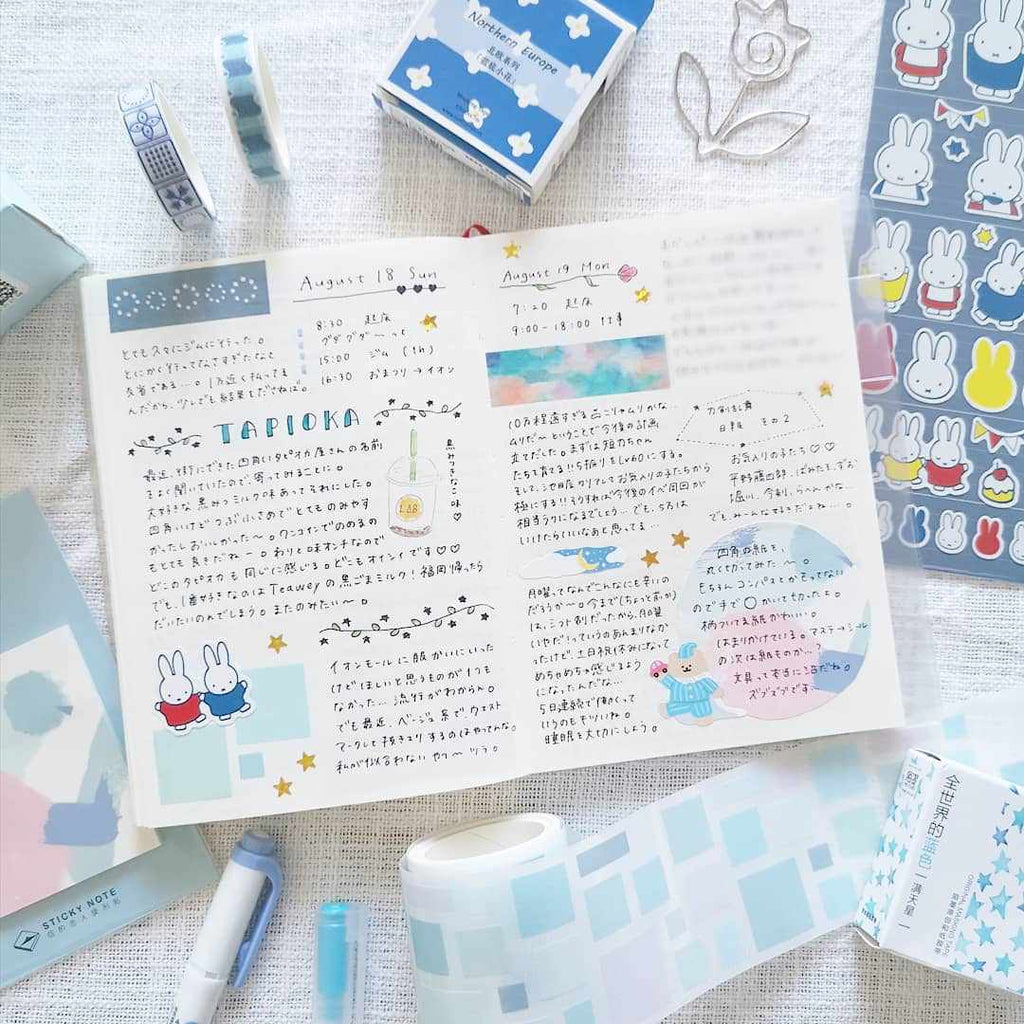 Northern Europe
北欧系列
「蓝枝小花」
August 18 Sun
8:30 起床
グダグダ〜っと
15:00 ジム (1h)
16:30 おまつり→イオン
とてもスタにジムに行った。
とにかく行ってなさすぎたなと
反省である…。1万近く払ってる
んだから、少しでも結果もださねば。
TAPIOKA
最近、近所にできた四角いタピオカ屋さんの名前
をよく聞いていたので、寄ってみることに。
大好きな黒みつミルク味あってそれにした。
四角いけどつぶ小さめでとてものみやす
かったしおいしかった〜。ワンコインでのめるの
もとても良きだねー。わりと味オンチなので
どこのタピオカも同じに感じる。どこもオイシイです♡♡
でも、1番好きなのはTeaweyの黒ごまミルク!福岡帰ったら
だいたいのんでしまう。またのみたい〜。
黒みつきなこ味♡
LAB
イオンモールに服かいにいった
けどほしいと思うものが1つも
なかった… 流行がわからん。
でも最近、ベージュ系でウエスト
マークして抜きえりするのはやってんな。
私が似合わないやつ〜 ツラ。
August 19 Mon
7:20 起床
9:00-18:00 仕事
10万程遠すぎる こりゃムリかな…
ムリだ〜ということで今後の計画
立てだした。まずは短刀ちゃん
たち育てる!!5振りをLv60にする。
そして、池田屋クリアしてお気入りの子たちから
極にする!そうすれば今後のイベ周回が
相当ラクになるでしょう… でも、5万は
いけたらいいなあと思ってる…
刀剣乱舞
日課 その2
お気入りの子たち♡♡
でもみーんな好きだよね…。
月曜ってなんでこんなにも辛いの
だろうか〜。今まで(ちょっと前か)
は、シフト制だったから、月曜
いやだ!っていうのあんまりなか
ったけど、土日祝休みになって
めちゃめちゃ感じるよう
になったんだな…
5日連続で働くって
いうのもキツいね。
睡眠を大切にしよう。
四角の紙を、
丸く切ってみた〜。
もちろんコンパスとかもってない
ので手で○かいて切ったよ。
柄ついてる紙かわいい。
はまりかけている。マステ→シール
の次は紙ものか…?
文具って本当に沼だね。
ズブズブです…
STICKY NOTE
全世界的蓝色
一满天星一
ORIGINAL MASKING TAPE